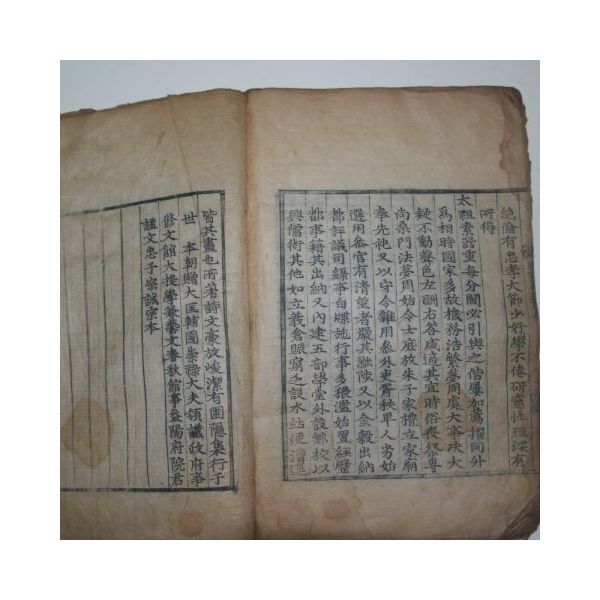 絶倫有忠孝大節少好學不倦硏窮性理深有
所得
太祖素器重每分閫必引與之偕屢加薦擢同升
爲相時國家多故機務浩繁夢周處大事決大
疑不動聲色左酬右答咸適其宜時俗喪祭專
尚桑門法夢周始令士庶放朱子家禮立家廟
奉先祀又以守令雜用叅外吏胥秩卑人劣始
選用叅官有淸望者嚴其黜陟又以金穀出納
都評議司錄事白牒施行事多猥濫始置經歷
都事籍其出納又內建五部學堂外設鄕校以
興儒術其他如立義倉賑窮乏設水站便漕運
皆其畫也所著詩文豪放峻潔有圃隱集行于
世 本朝贈大匡輔國崇祿大夫領議政府事
修文館大提學兼藝文春秋館事益陽府院君
謚文忠子宗誠宗本